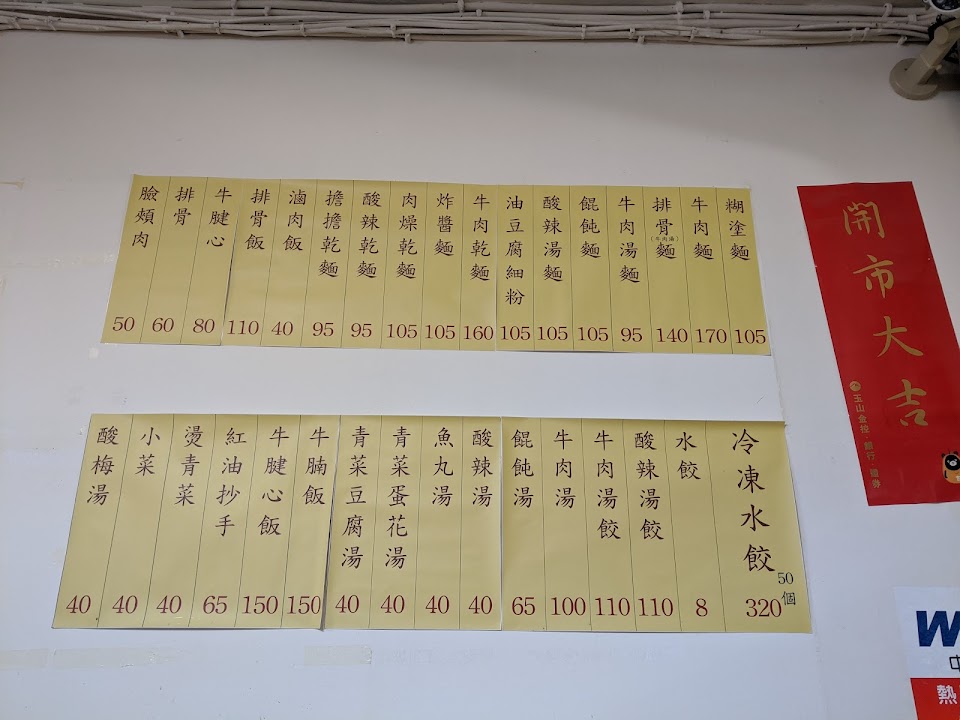 糊塗麵 105
牛肉麵 170
排骨麵 (牛肉湯) 140
牛肉湯麵 95
餛飩麵 105
酸辣湯麵 105
油豆腐細粉 105
牛肉乾麵 160
炸醬麵 105
肉燥乾麵 105
酸辣乾麵 95
擔擔乾麵 95
滷肉飯 40
排骨飯 110
牛腱心 80
排骨 60
臉頰肉 50
冷凍水餃 50個 320
水餃 8
酸辣湯餃 110
牛肉湯餃 110
牛肉湯 100
餛飩湯 65
酸辣湯 40
魚丸湯 40
青菜蛋花湯 40
青菜豆腐湯 40
牛腩飯 150
牛腱心飯 150
紅油抄手 65
燙青菜 40
小菜 40
酸梅湯 40
開市大吉
玉山金控·銀行·證券
W
中
熱